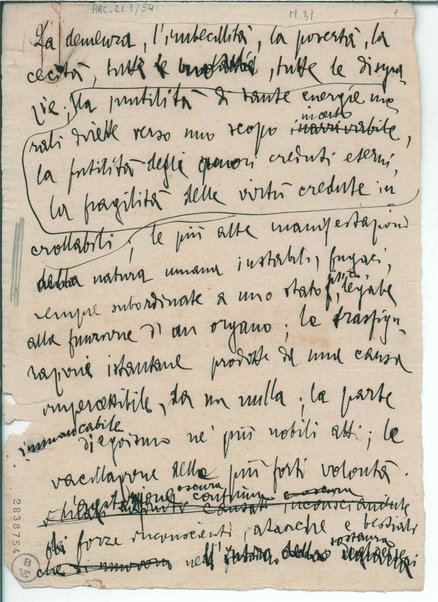 ARC.21.1/54 N.31 1
La demenza, l'imbecillità, la povertà, la
cecità, tutte le malattie, tutte le disgra-
zie; la inutilità di tante energie mo-
rali dirette verso uno scopo incerto inarrivabile,
la futilità degli amori creduti eterni,
la fragilità delle virtù credute in-
crollabili; le più alte manifestazioni
della natura umana instabili, fugaci,
sempre subordinate a uno stato fisico, legate
alla funzione di un organo; le trasfigu-
razioni istantanee prodotte da una causa
impercettibile, da un nulla; la parte
immancabile
di egoismo ne' più nobili atti; le
vacillazione delle più forti volontà.
oscura continua inconsciamente
di forze inconscienti, ataviche e bestiali
che nell'intimo della sostanza
2838754